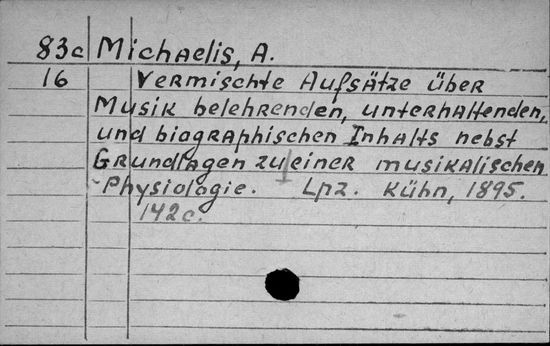 83c Michaelis, A.
16 Vermischte Aufsätze über
Musik belehrenden, unterhaltenden,
und biographischen Inhalts nebst
Grundlagen zu einer musikalischen
Physiologie. Lpz. Kühn, 1895.
142c.